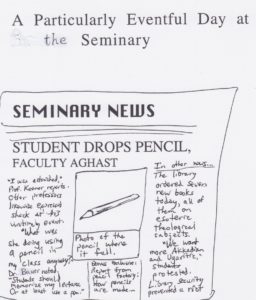 A Particularly Eventful Day at
the Seminary
SEMINARY NEWS
STUDENT DROPS PENCIL,
FACULTY AGHAST
"I was astounded,"
Prof. reports.
Other professors
likewise expressed
shock at this
untimely event.
"What was
she doing using
a pencil in
my class anyway?"
Dr. Bauer noted.
"Students should
memorize my lectures
Or at least use a pen."
Photo of the
pencil where
it fell.
Bonus Feature:
Report from
pencil factory:
How pencils
are made...
In other news...
The library
ordered seven
new books
today, all of
them on
esoteric
theological
subjects.
"We want
more Akkadian
and Ugaritic,"
students
protested.
Library Security
prevented a riot